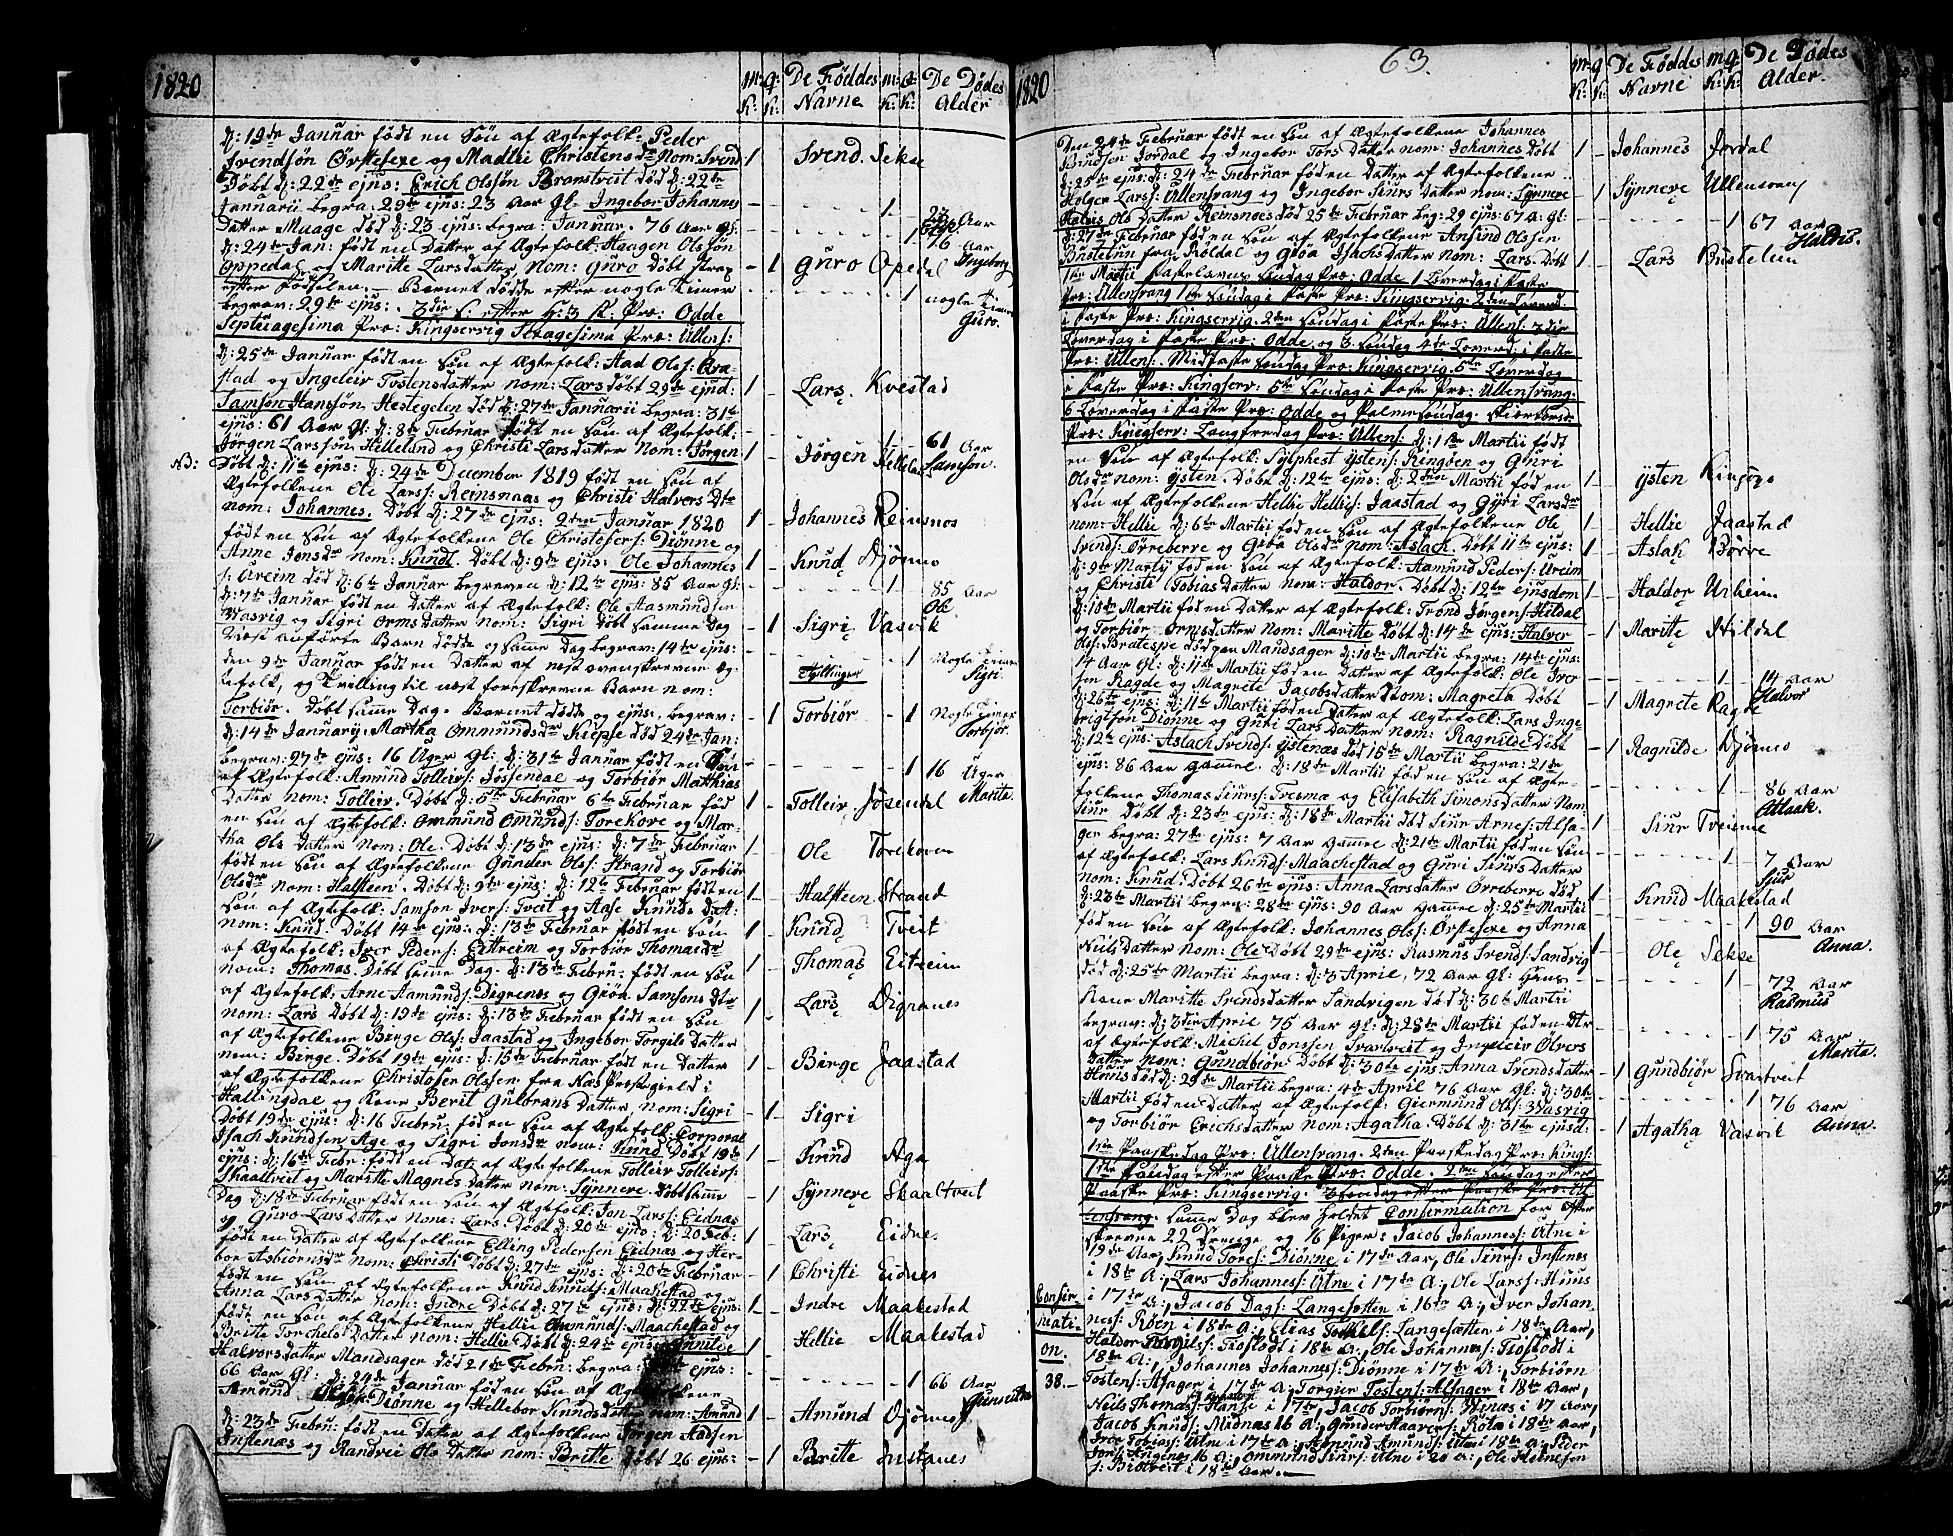 1820
m: K:
q: K:
De Føddes Navne
m: K:
q: K:
De Dødes Alder
d: 19de Januar født en Søn af Ægtefolk: Peder
Svendsøn Ørstesexe og Madlii Christensdr Nom: Svend
Døbt d: 22de ejus: Erich Olssøn Branstveit død d: 22de
Januarii begra: 29de ejus: 23 Aar gl: Ingebor Johannes
Datter Maage død d: 23 ejus: begra: Januar. 76 Aar gl:
d: 24de Jan: født en Datter af Ægtefolk: Haagen Olssøn
Oppedal og Maritte Larsdatter, Nom: Guro døbt strax
efter Fødselen. Barnet døde efter nogle Timer
begrav: 29de ejus: 3die S: efter H: 3 K: Præ: Odde
Septuagesima Præ: Kingservig Sexagesima Præ: Ullens:
d: 25de Januar født en Søn af Ægtefolk: Aad Olss: Qva-
stad og Ingeleiv Tostensdatter nom: Lars døbt 29de ejusd:
Samson Hanssøn, Hestegelen død d: 27de Januarii begra: 31te
ejus: 61 Aar gl: d: 8de Februar født en Søn af Ægtefolk:
Jørgen Larssøn, Helleland og Christi Larsdatter Nom: Jørgen
NB:
Døbt d: 11te ejus: d: 24de December 1819 født en Søn af
Ægtefolkene Ole Larss: Remsnaas og Christi Halvers Dtr
nom: Johannes. Døbt d: 27de ejus: 2den Januar 1820
født en Søn af Ægtefolkene Ole Christofers: Diønne og
Anne Jonsdr Nom: Knud. Døbt d: 9de ejus: Ole Johannes
s: Areim død d: 6te Januar begreven d: 12te ejus: 85 Aar gl:
d: 7de Januar født en Datter af Ægtefolk: Ole Aasmundsen
Wasvig og Sigri Ormsdatter nom: Sigri døbt samme Dag
Næst anførte Barn døde samme Dag begrav: 14de ejus:
den 9de Januar født en Datter af næst ovenskrevne Æg-
tefolk, og Tvilling til næst foreskrevne Barn nom:
Torbiør. Døbt samme Dag. Barnet døde og ejus: begrav:
d: 14de Januarij. Martha Ommundsdr Kiepse død 24de Jan:
begrav: 27de ejus: 16 Uger gl: d: 31te Januar født en Søn
af Ægtefolk: Amund Tolleivs: Jøssendal og Torbiør Matthias
Datter nom: Tolleiv. Døbt d: 5te Februar 6te Februar fød
en søn af Ægtefolk: Ommund Omunds: Torekove og Mar-
tha Ols Datter Nom: Ole. Døbt d: 13de ejus: d: 7de Februar
født en Søn af Ægtefolkene Gunder Olss: Strand og Torbiør
Olsdr nom: Halsteen. Døbt d: 9de ejus: d: 12te Februar født en
Søn af Ægtefolk: Samson Ivers: Tveit og Aase Knuds Datt:
nom: Knud. Døbt 14de ejus: d: 13de Februar født en Søn
af Ægtefolk: Iver Peders: Eittreim og Torbiør Thomasdr
nom: Thomas. Døbt samme Dag. d: 13de Febru: født en Søn
af Ægtefolk: Arne Aamunds: Digrenes og Gróa Samsons dtr
nom: Lars Døbt d: 19de ejus: d: 13de Februar født en Søn
af Ægtefolkene Birge Olss: Jaastad og Ingebor Torgils Datter
nom: Birge. Døbt 19de ejus: d: 15de Februar født en Datter
af Ægtefolkene Christofer Olssen fra Næs Præstegield i
Hallingdal og Kone Berit Gulbrans Datter, nom: Sigri
Døbt 19de ejus: d: 16 Febru: født en søn af Ægtefolk: Corporal
Isach Knudsen Age og Sigri Jonsdr nom: Knud Døbt 19de
ejus: d: 16te Febr: født en Datr af Ægtefolkene Tolleiv Tolleivs:
Skaaltveit og Maritte Magnes Datter nom: Synneve. Døbt samme
Dag d: 18de Februar født en Søn af Ægtefolk: Jon Larss: Eidnæs
og Guro Lars Datter nom: Lars Døbt d: 20de ejus: d: 20 Feb:
født en Datter af Ægtefolkene Elling Pedersen Eidnæs og Her-
bor Asbiørnsdr Nom: Christi Døbt d: 27de ejus: d: 20de Februar
født en Søn af Ægtefolkene Knud Knuds: Maachestad og
Anna Lars Datter Nom: Indre Døbt d: 27de ejus: d: 22de ejus:
født en Søn af Ægtefolkene Hellie Ommunds: Maachestad og
Britte Torchels Datter nom: Hellie Døbt d: 24de ejus: Gunnilde
Halvorsdatter Mandsager død 21de Febru: begra: ejus:
66 Aar gl: d: 24de Januar fød en Søn af Ægtefolkene
Amund Diønne og Hellebor Knudsdatter nom: Amund
d: 23de Febru: født en Datter af Ægtefolkene Jørgen Aadsen
Instenæs og Randvei Ols Datter nom: Britte Døbt 26 ejus:
Svend. Sekse
23 Aar
76 Aar Ingeborg
Guro Opedal
nogle Timer Guro.
Lars Kvestad
61 Aar Samson.
Jørgen Hellelan
Johannes Reinsnos
Knud Djønno
85 Aar Ole
Sigri Vasvik
Nogle Timer Sigri
Tvillinger
Torbiør
Nogle Timer Torbjør.
16 Uger Marita.
Tolleiv Jøsendal
Ole Torekoven
Halsteen Strand
Knud Tveit
Thomas Eitreim
Lars Dignanes
Birge Jaastad
Sigri
Knud Aga
Synneve Skaaltveit
Lars Eidnes
Christi Eidnes
Indre Maakestad
Hellie Maakestad
66 Aar
Amund Djønno
Britte Instanes
1820
63.
m: K:
q K:
De Føddes Navne
m: K:
q: K:
De Dødes Alder.
Den 24de Februar født en Søn af Ægtefolkene Johannes
Brudsen Jordal og Ingebor Tors Datter nom: Johannes Døbt
d: 25de ejus: d: 24de Februar fød en Datter af Ægtefolkene
Holger Larss: Ullensvang og Ingebor Siurs Datter nom: Synneve
Haldis Ols Datter Remsnoes død 25de Februar beg: 29 ejus: 67 A: gl:
d: 27de Februar fød en Søn af Ægtefolkene Ansind Olssen
Bustelun fra Røldal og Gróa Isachs Datter Nom: Lars. Døbt
1ste Martii Fastelavns Søndag Præ: Odde 1 Løverdag i Faste
Præ: Ullensvang 1ste Søndag i Faste Præ: Kingservig. 2den Løverd:
i Faste Præ: Kingservig. 2den Søndag i Faste Præ: Ullens: 3die
Løverdag i Faste Præ: Odde og 3 Søndag 4de Løverd: i Faste
Præ: Ullens: Midfaste Søndag Præ: Kingservig 5te Løverdag
i Faste Præ: Kingserv: 5te Søndag i Faste Præ: Ullensvang.
6 Løverdag i Faste Præ: Odde og Palmesøndag. Skiertorsd:
Præ: Kingserv: Langfredag Præ: Ullens: d: 1ste Martii født
en Søn af Ægtefolk: Sylphest Ystens: Ringøen og Guri
Olsdr nom: Ysten. Døbt d: 12te ejus: d: 2den Martii fød en
Søn af Ægtefolkene Hellie Hellies: Jaastad og Gyri Larsdr
nom: Hellie d: 6te Martii fød en Søn af Ægtefolkene Ole
Svends: Ørreberre og Gróa Olsdr Nom: Aslach. Døbt 11te ejus:
d: 9de Martij fød en Søn af Ægtefolk: Aamund Peders: Ureim
og Christi Tobias Datter Nom: Haldor. Døbt d: 12te ejusdem
d: 10de Martii fød en Datter af Ægtefolk: Trond Jørgens: Hildal
og Torbiør Ormsdatter Nom: Maritte Døbt d: 14de ejus: Halver
Ols: Bratespe død paa Mandsager d: 10de Martii begra: 14de ejus:
14 Aar Gl: d: 11te Martii fød en Datter af Ægtefolk: Ole Iver
sen Ragde og Magrete Jacobsdatter Nom: Magreta Døbt
d: 26de ejus: d: 11te Martii fød en Datter af Ægtefolk: Lars Inge-
brigtsøn Diønne og Guri Lars Datter nom: Ragnilde Døbt
d: 12te ejus: Aslach Svends: Ystenæs død 15de Martii begra: 21de
ejus: 86 Aar Gammel. d: 18de Martii fød en Søn af Ægte-
folkene Thomas Siurs: Tvesma og Elisabeth Simons Datter Nom:
Siur Døbt d: 23de ejus: d: 18de Martii død Siur Arnes: Alsa-
ger begra: 27de ejus: 7 Aar Gammel d: 21de Martii fød en Søn
af Ægtefolk: Lars Knuds: Maachestad og Guri Siurs Datter
nom: Knud. Døbt 26de ejus: Anna Larsdatter Ørreberre død
d: 23de Martii begra: 28de ejus: 90 Aar Gammel d: 25de Martii
fød en Søn af Ægtefolk: Johannes Ols: Ørstesexe og Anna
Niils Datter Nom: Ole Døbt 29de ejus: Rasmus Svends: Sandvig
død d: 25de Martii begra: d: 3 April, 72 Aar Gl: Hans
Kone Maritte Svendsdatter Sandvigen død d: 30te Martii
begrav: d: 3die April 75 Aar gl: d: 28de Martii fød en dtr
af Ægtefolk: Michel Jonssen Svartveit og Ingeleiv Olvers
Datter Nom: Gundbiør Døbt d: 30te ejus: Anna Svendsdatter
Huus død d: 29de Martii begra: 4de April 76 Aar Gl: d: 30te
Martii fød en Datter af Ægtefolk: Guermund Ols: Wasvig
og Torbiør Erichsdatter nom: Agatha. Døbt d: 31te ejusd:
1ste Paaskedag Præ: Ullensvang. 2den Paaskedag Præ: Kings:
1ste Søndag efter Paaske Præ: Odde. 2den Søndag efter
Paaske Præ: Kingservig. 3 Søndag efter Paaske Præ: Ul
lensvang. Samme Dag blev holdet Confirmation for efter
skrevne 22 Drenge og 16 Piger: Jacob Johannes: Utne i
19de Aar, Knud Tores: Diønne i 17de Aar, Ole Siurs: Instenes
i 18de A:, Lars Johannes: Utne i 17de A:, Ole Larss: Huus
i 17de A:, Jacob Dags: Langesætten i 16de A:, Iver Johan-
nes: Røen i 18de A:, Elias Torkels: Langesætten i 18de Aar,
Haldor Torgils: Tiostodt i 18de A:, Ole Johannes: Tiostodt i
18de A:, Johannes Johannes: Diønne i 17de A:, Torbiørn
Tostens: Alsager i 17de A:, Torgier Tostens: Alsager i 18de Aar,
Neils Thomas: Hanse i 17de, Jacob Torbiørns: Hinæs i 17 Aar,
Jacob Knuds: Midnæs 16 A:, Gunder Haavers: Røte i 18de Aar,
Iver Tobias: Utne i 17de A:, Asmund Amunds: Utne i 18de A: Peder
16 A:, Ommund Siurs: Utne i 20 A:, Ole Helnesen
s: Bildtveit i 18de Aar.
Confir-
mati-
on.
38.
Johannes Jordal
Synneve Ullensvang
67 Aar Haldis.
Lars Bustelun
Ysten Ringøyo
Hellie Jaastad
Aslak Børve
Haldor Urheim
Maritte Hildal
14 Aar Halvor
Magrete Ragde
Ragnilde Djønno
86 Aar Atlaak.
Siur Tveisme
7 Aar Sjur
Knud Maakestad
90 Aar Anna.
Ole Sekse
72 Aar Rasmus
75 Aar Marita.
Gundbiør Svartveit
76 Aar Anna.
Agatha Vasvik